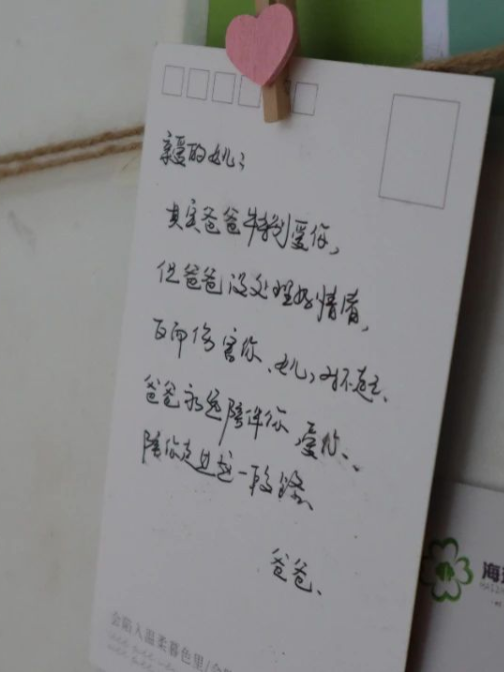 亲爱的女儿:
其实爸爸特别爱你,
但爸爸没处理好情绪,
反而伤害你、女儿,对不起、
爸爸永远陪伴你,爱你、
陪你走过这一段路、
爸爸、
会陷入温柔暮色里/
海